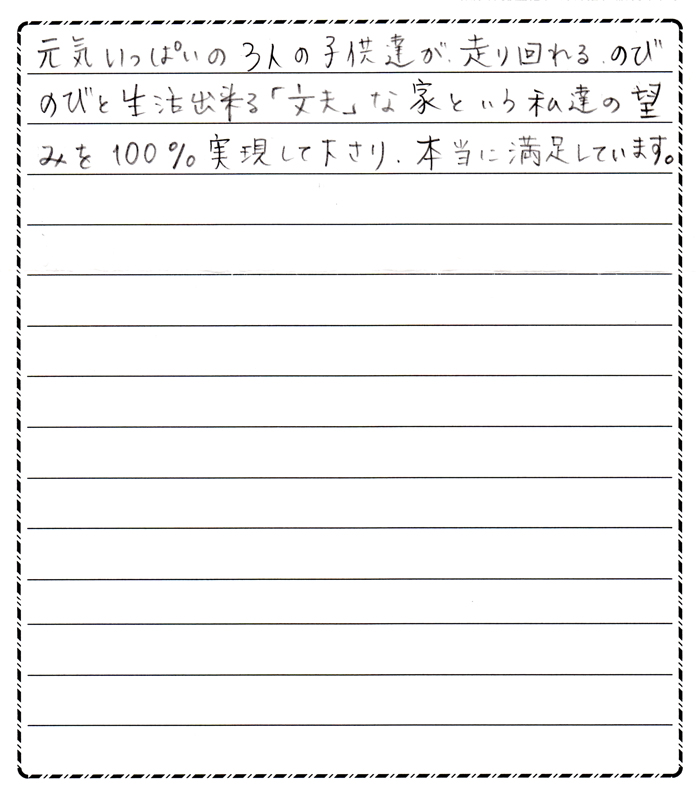 元気いっぱいの3人の子供達が、走り回れる、のび
のびと生活出来る「丈夫」な家という私達の望
みを100%実現して下さり、本当に満足しています。